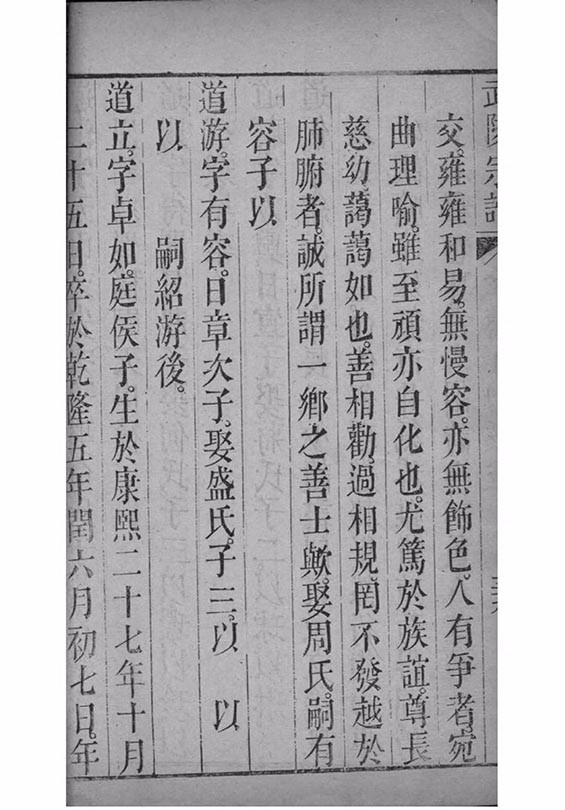 武陵宗譜
交。雍雍和易。無慢容。亦無飾色。人有爭者。宛
曲理喻。雖至頑亦自化也。尤篤於族誼。尊長
慈幼。藹藹如也。善相勸。過相規。罔不發越於
肺腑者。誠所謂一鄉之善士歟。娶周氏。嗣有
容子以
道游。字有容。日章次子。娶盛氏。子三。以　以
以　　嗣紹游後。
道立。字卓如。庭侯子。生於康熙二十七年十月
二十五日。卒於乾隆五年閏六月初七日。年